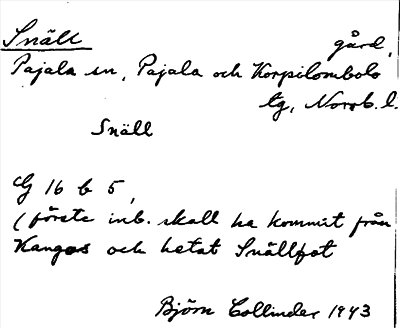 Snäll gård,
Pajala sn, Pajala och Korpilombolo
tg, Norrb. l.
Snäll
G 16 b 5,
(förste inb. skall ha kommit från
Kangos och hetat Snällfot
Björn Collinder 1943